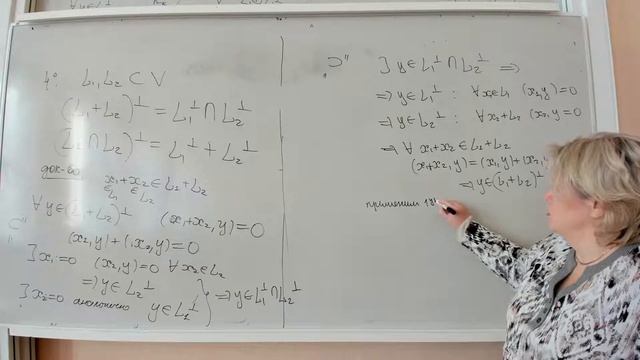 4° L₁, L₂ ⊂ V
(L₁+L₂)^⊥ = L₁^⊥ ∩ L₂^⊥
(L₁∩L₂)^⊥ = L₁^⊥ + L₂^⊥
док-во
x₁+x₂ ∈ L₁+L₂
∈L₁ ∈L₂
"⊂" ∀y∈(L₁+L₂)^⊥ (x₁+x₂, y) = 0
(x₁, y) + (x₂, y) = 0
∃ x₁=0 (x₂, y)=0 ∀x₂∈L₂
⇒ y∈L₂^⊥
∃ x₂=0 аналогично y∈L₁^⊥ } ⇒ y∈L₁^⊥∩L₂^⊥
"⊃" ∃ y∈L₁^⊥ ∩ L₂^⊥ ⇒
⇒ y∈L₁^⊥ : ∀x∈L₁ (x, y)=0
⇒ y∈L₂^⊥ : ∀x₂∈L₂ (x₂, y)=0
⇒ ∀ x₁+x₂ ∈ L₁+L₂
(x₁+x₂, y) = (x₁, y) + (x₂,
⇒ y∈(L₁+L₂)^⊥
применим